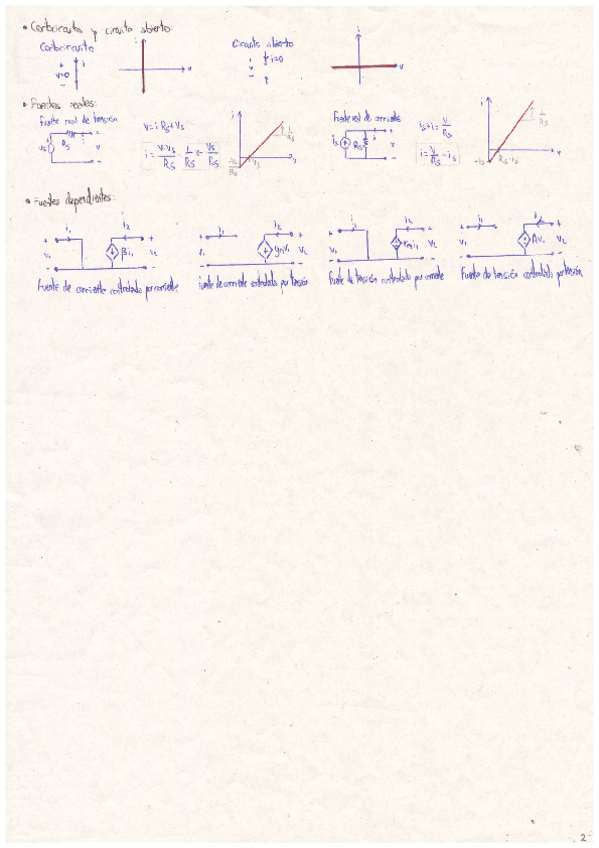 • Cortocircuito y circuito abierto:
Cortocircuito
v=0
i
i
v
Circuito abierto
i=0
v
i
v
• Fuentes reales:
Fuente real de tensión
v = i·Rs + Vs
i = v-vs/Rs = 1/Rs v - vs/Rs
Rs
vs
i
v
1/Rs
-vs/Rs
vs
Fuente real de corriente
is + i = v/Rs
i = v/Rs - is
is
Rs
i
v
1/Rs
-is
Rs·is
• Fuentes dependientes:
i1
i2
v1
βi1
v2
Fuente de corriente controlada por corriente
i1
i2
v1
gmv1
v2
Fuente de corriente controlada por tensión
i1
i2
v1
rmi1
v2
Fuente de tensión controlada por corriente
i1
i2
v1
Av1
v2
Fuente de tensión controlada por tensión
2